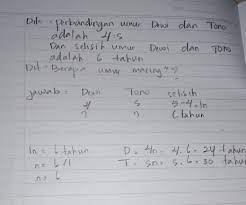 Dik : perbandingan umur Dewi dan Tono
adalah 4:5
Dan selisih umur Dewi dan Tono
adalah 6 tahun
Dit : Berapa umur masing"??
jawab : Dewi Tono selisih
4 5 5-4=1n
? ? 6 tahun
1n = 6 tahun D = 4n = 4.6 = 24 tahun
n = 6/1 T = 5n = 5.6 = 30 tahun
n = 6